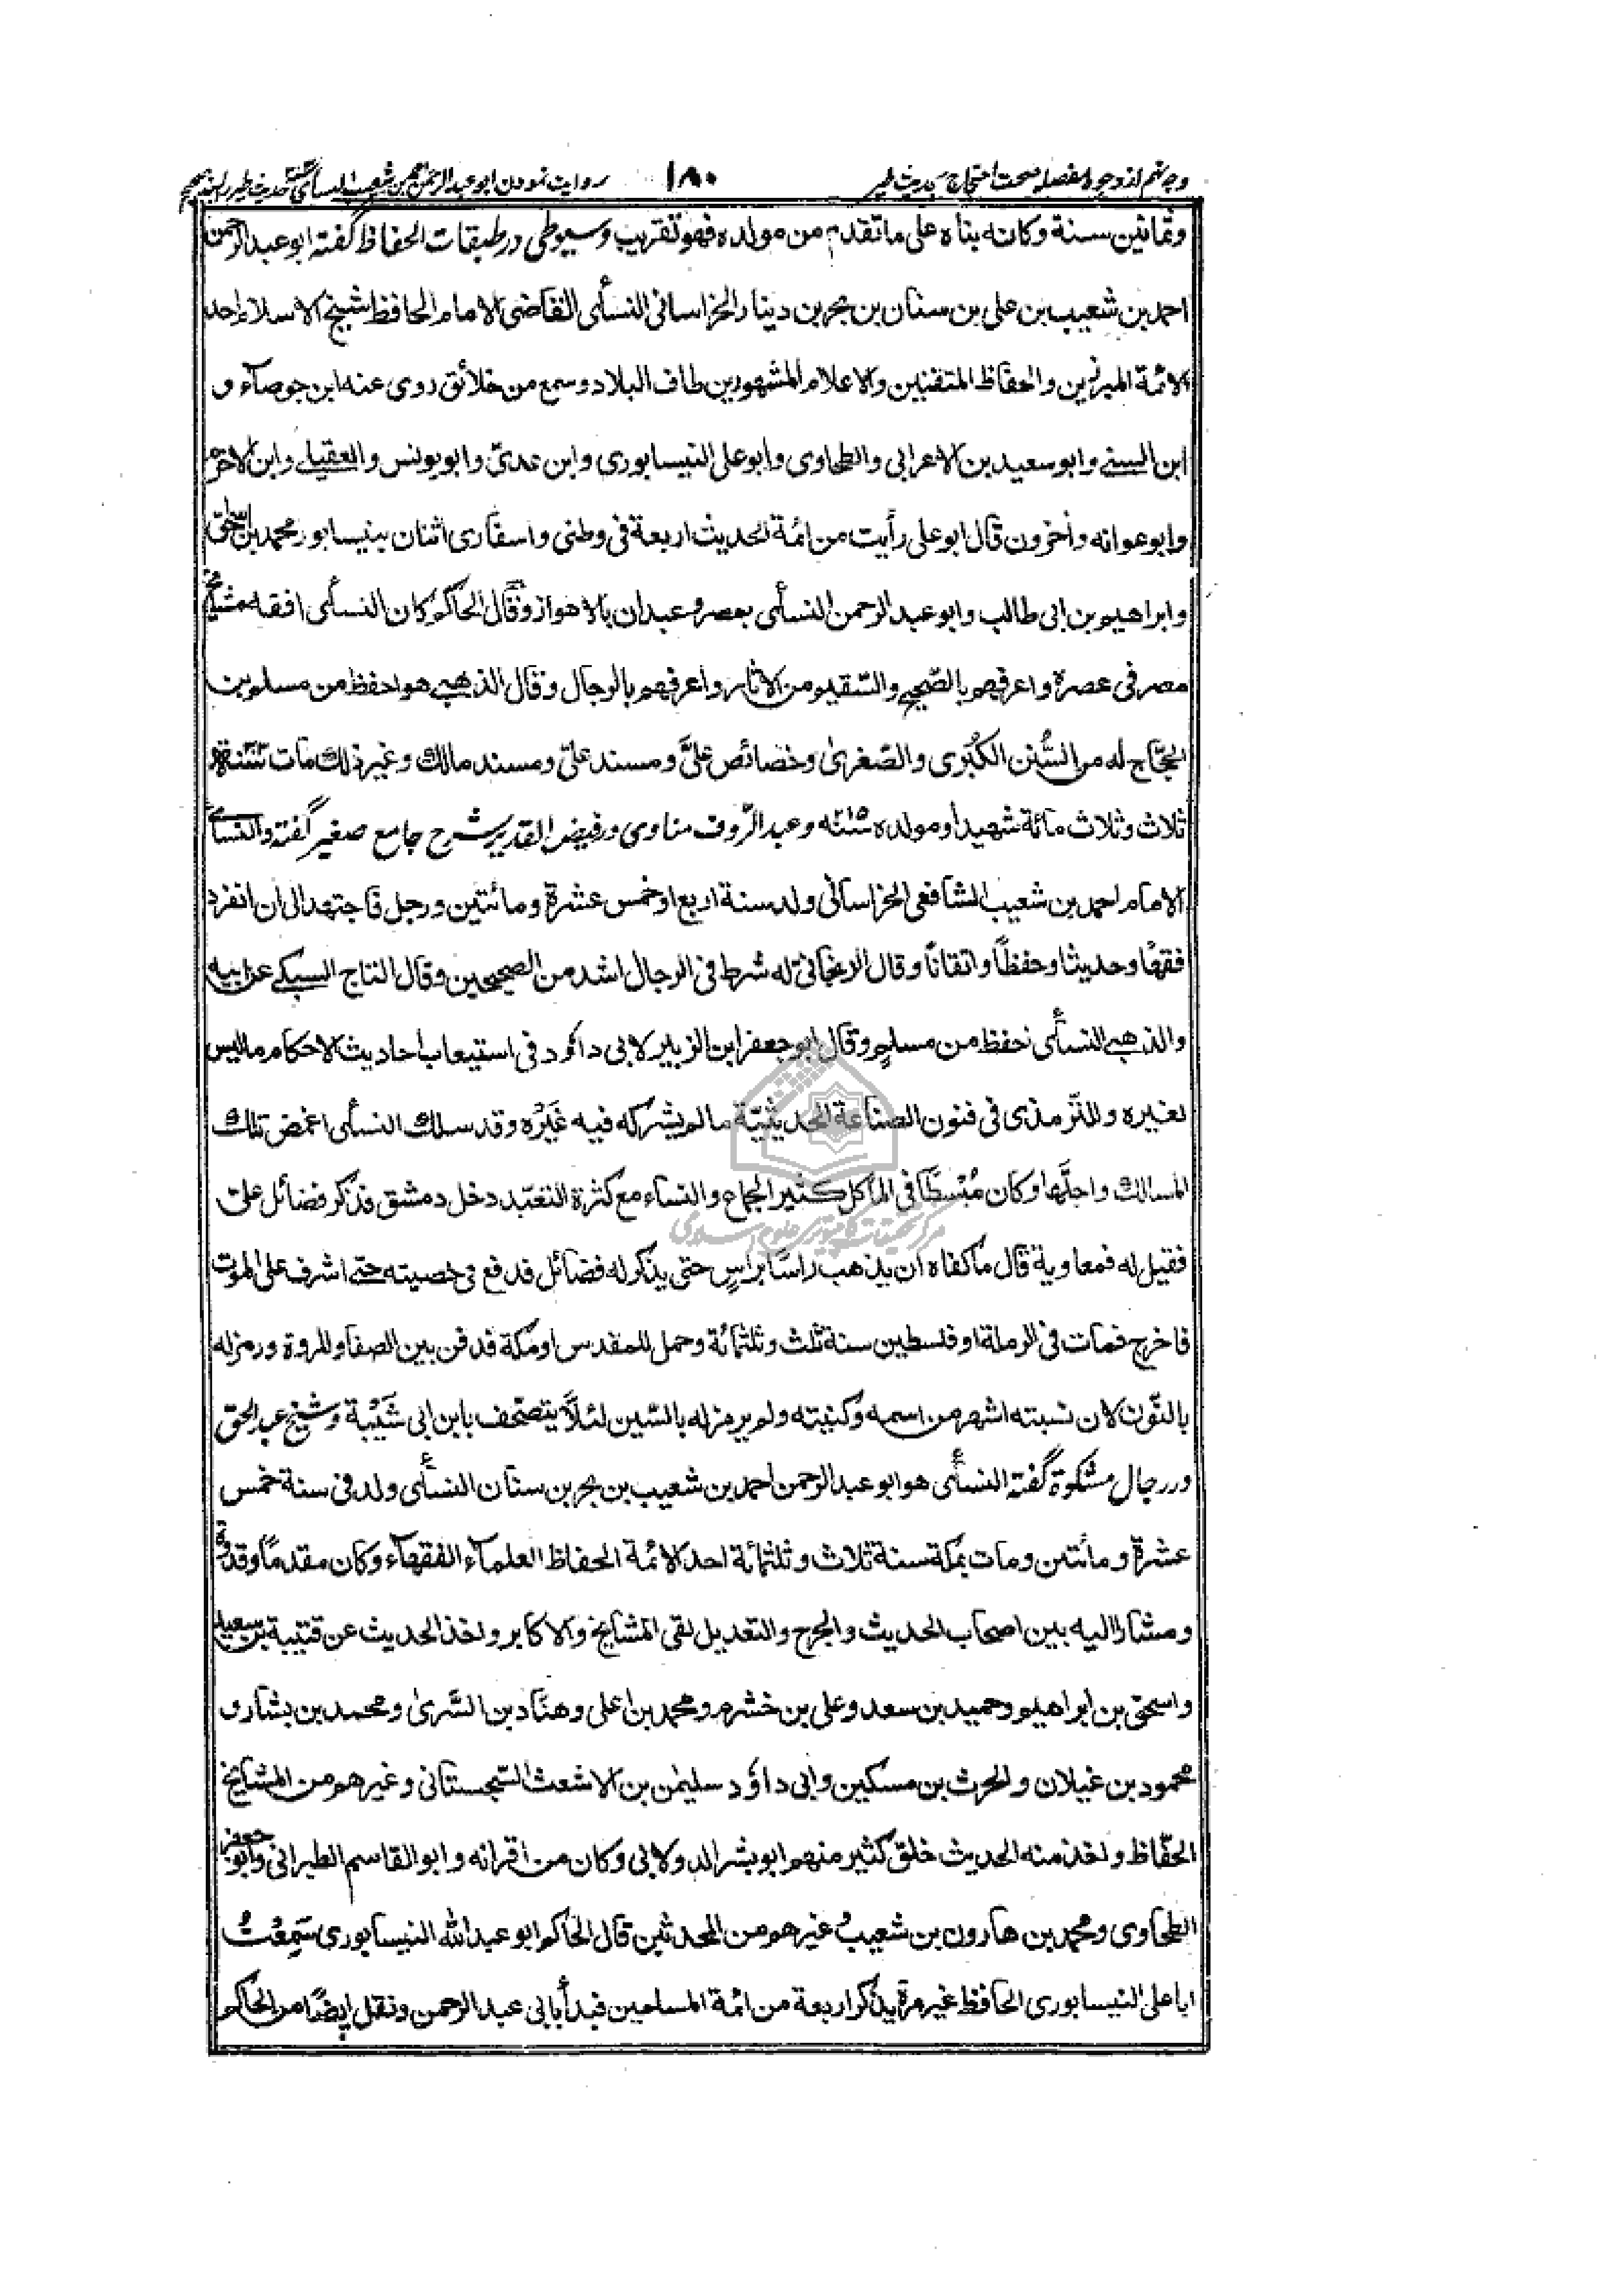 وجه نهم از وجوه مفصله صحت احتجاج بحدیث طیر ۱۸۰ روایت نمودن ابو عبد الرحمن احمد بن شعیب النسائی حدیث طیر را
وثمانين سنة وكانه بناه على ماتقدم من مولده فهو تقريب وسيوطی در طبقات الحفاظ گفته ابو عبد الرحمن
احمد بن شعيب بن علی بن سنان بن بحر بن دينار الخراسانی النسأی القاضی الامام الحافظ شيخ الاسلام احد
الائمة المبرزين والحفاظ المتقنين والاعلام المشهورين طاف البلاد وسمع من خلائق روی عنه ابن جوصاء و
ابن السنی وابو سعيد بن الاعرابی والطحاوی وأبو علی النيسابوری وابن عدیّ وابو يونس والعقيلی وابن الاخرم
وابو عوانه وأخرون قال ابو علی رأيت من ائمة الحديث اربعة فی وطنی واسفاری اثنان بنيسابور محمد بن اسحٰق
وابراهيم بن ابی طالب وابو عبد الرحمن النسأی بمصر وعبدان بالاهواز وقال الحاكم كان النسأی افقه مشايخ
مصر فی عصره واعرفهم بالصّحيح والسّقيم من الاثار واعرفهم بالرجال وقال الذهبی هو احفظ من مسلم بن
الحجّاج له من السُّنن الكُبرى والصّغرىٰ وخصائص علیّ ومسند علیّ ومسند مالك وغير ذلك مات سنة
ثلاث وثلاث مائة شهيداً ومولده ۲۱۵سنه وعبد الرّوف مناوی در فيض القدير شرح جامع صغير گفته والنسأی
الامام احمد بن شعيب الشافعی الخراسانی ولد سنة اربع او خمس عشرة ومائتين ورحل فاجتهد الى ان انفرد
فقهًا وحديثا وحفظًا واتقانًا وقال الزنجانی له شرط فی الرجال اشد من الصحيحين وقال التاج السبكی عن ابيه
والذهبی النسأی احفظ من مسلمٍ وقال ابو جعفر ابن الزبير لابی داؤد فی استيعاب احاديث الاحكام ما ليس
لغيره وللتّرمذی فی فنون الصناعة الحديثيّة ما لم يشركه فيه غَيْره وقد سلك النسأی اغمض تلك
المسالك واجلّها وكان مُنبسطًا فی المأكل كثير الجماع والنساء مع كثرة التعبّد دخل دمشق فذكر فضائل علیّ
فقيل له فمعاوية قال ماكفاه ان يذهب راسًا براسٍ حتى يذكر له فضائل فدفع فی خصيته حتى اشرف على الموت
فاخرج فمات فی الرملة او فلسطين سنة ثلث وثلثمائة وحمل للمقدس او مكة فدفن بين الصفا والمروة ورمز له
بالنّون لان نسبته اشهر من اسمه وكنيته ولم يرمز له بالسّين لئلاّ يتصحّف بابن ابی شَيْبة وشيخ عبد الحق
در رجال مشكوة گفته النسأی هو ابو عبد الرحمن احمد بن شعيب بن بحر بن سنان النسأی ولد فی سنة خمس
عشرة ومائتين ومات بمكة سنة ثلاث وثلثمائة احد الائمة الحفاظ العلماء الفقهاء وكان مقدمًا وقدوة
ومشارا اليه بين اصحاب الحديث والجرح والتعديل لقی المشايخ والاكابر واخذ الحديث عن قتيبة بن سعيد
واسحٰق بن ابراهيم وحميد بن سعد وعلی بن خشرم ومحمد بن اعلی وهنّاد بن السَّریٰ ومحمد بن بشار و
محمود بن غيلان والحرث بن مسكين وابی داؤد سليمٰن بن الاشعث السّجستانی وغيرهم من المشايخ
الحفّاظ واخذ منه الحديث خلق كثير منهم ابو بشر الدولابی وكان من اقرانه وابو القاسم الطبرانی وابو جعفر
الطحاوی ومحمد بن هارون بن شعيب وغيرهم من المحدثين قال الحاكم ابو عبد الله النيسابوری سَمِعْتُ
ابا علی النيسابوری الحافظ غير مرة يذكر اربعة من ائمة المسلمين فبدأ بابی عبد الرحمن ونقل ايضًا من الحاكم
مرکز تحقیقات کامپیوتری علوم اسلامی